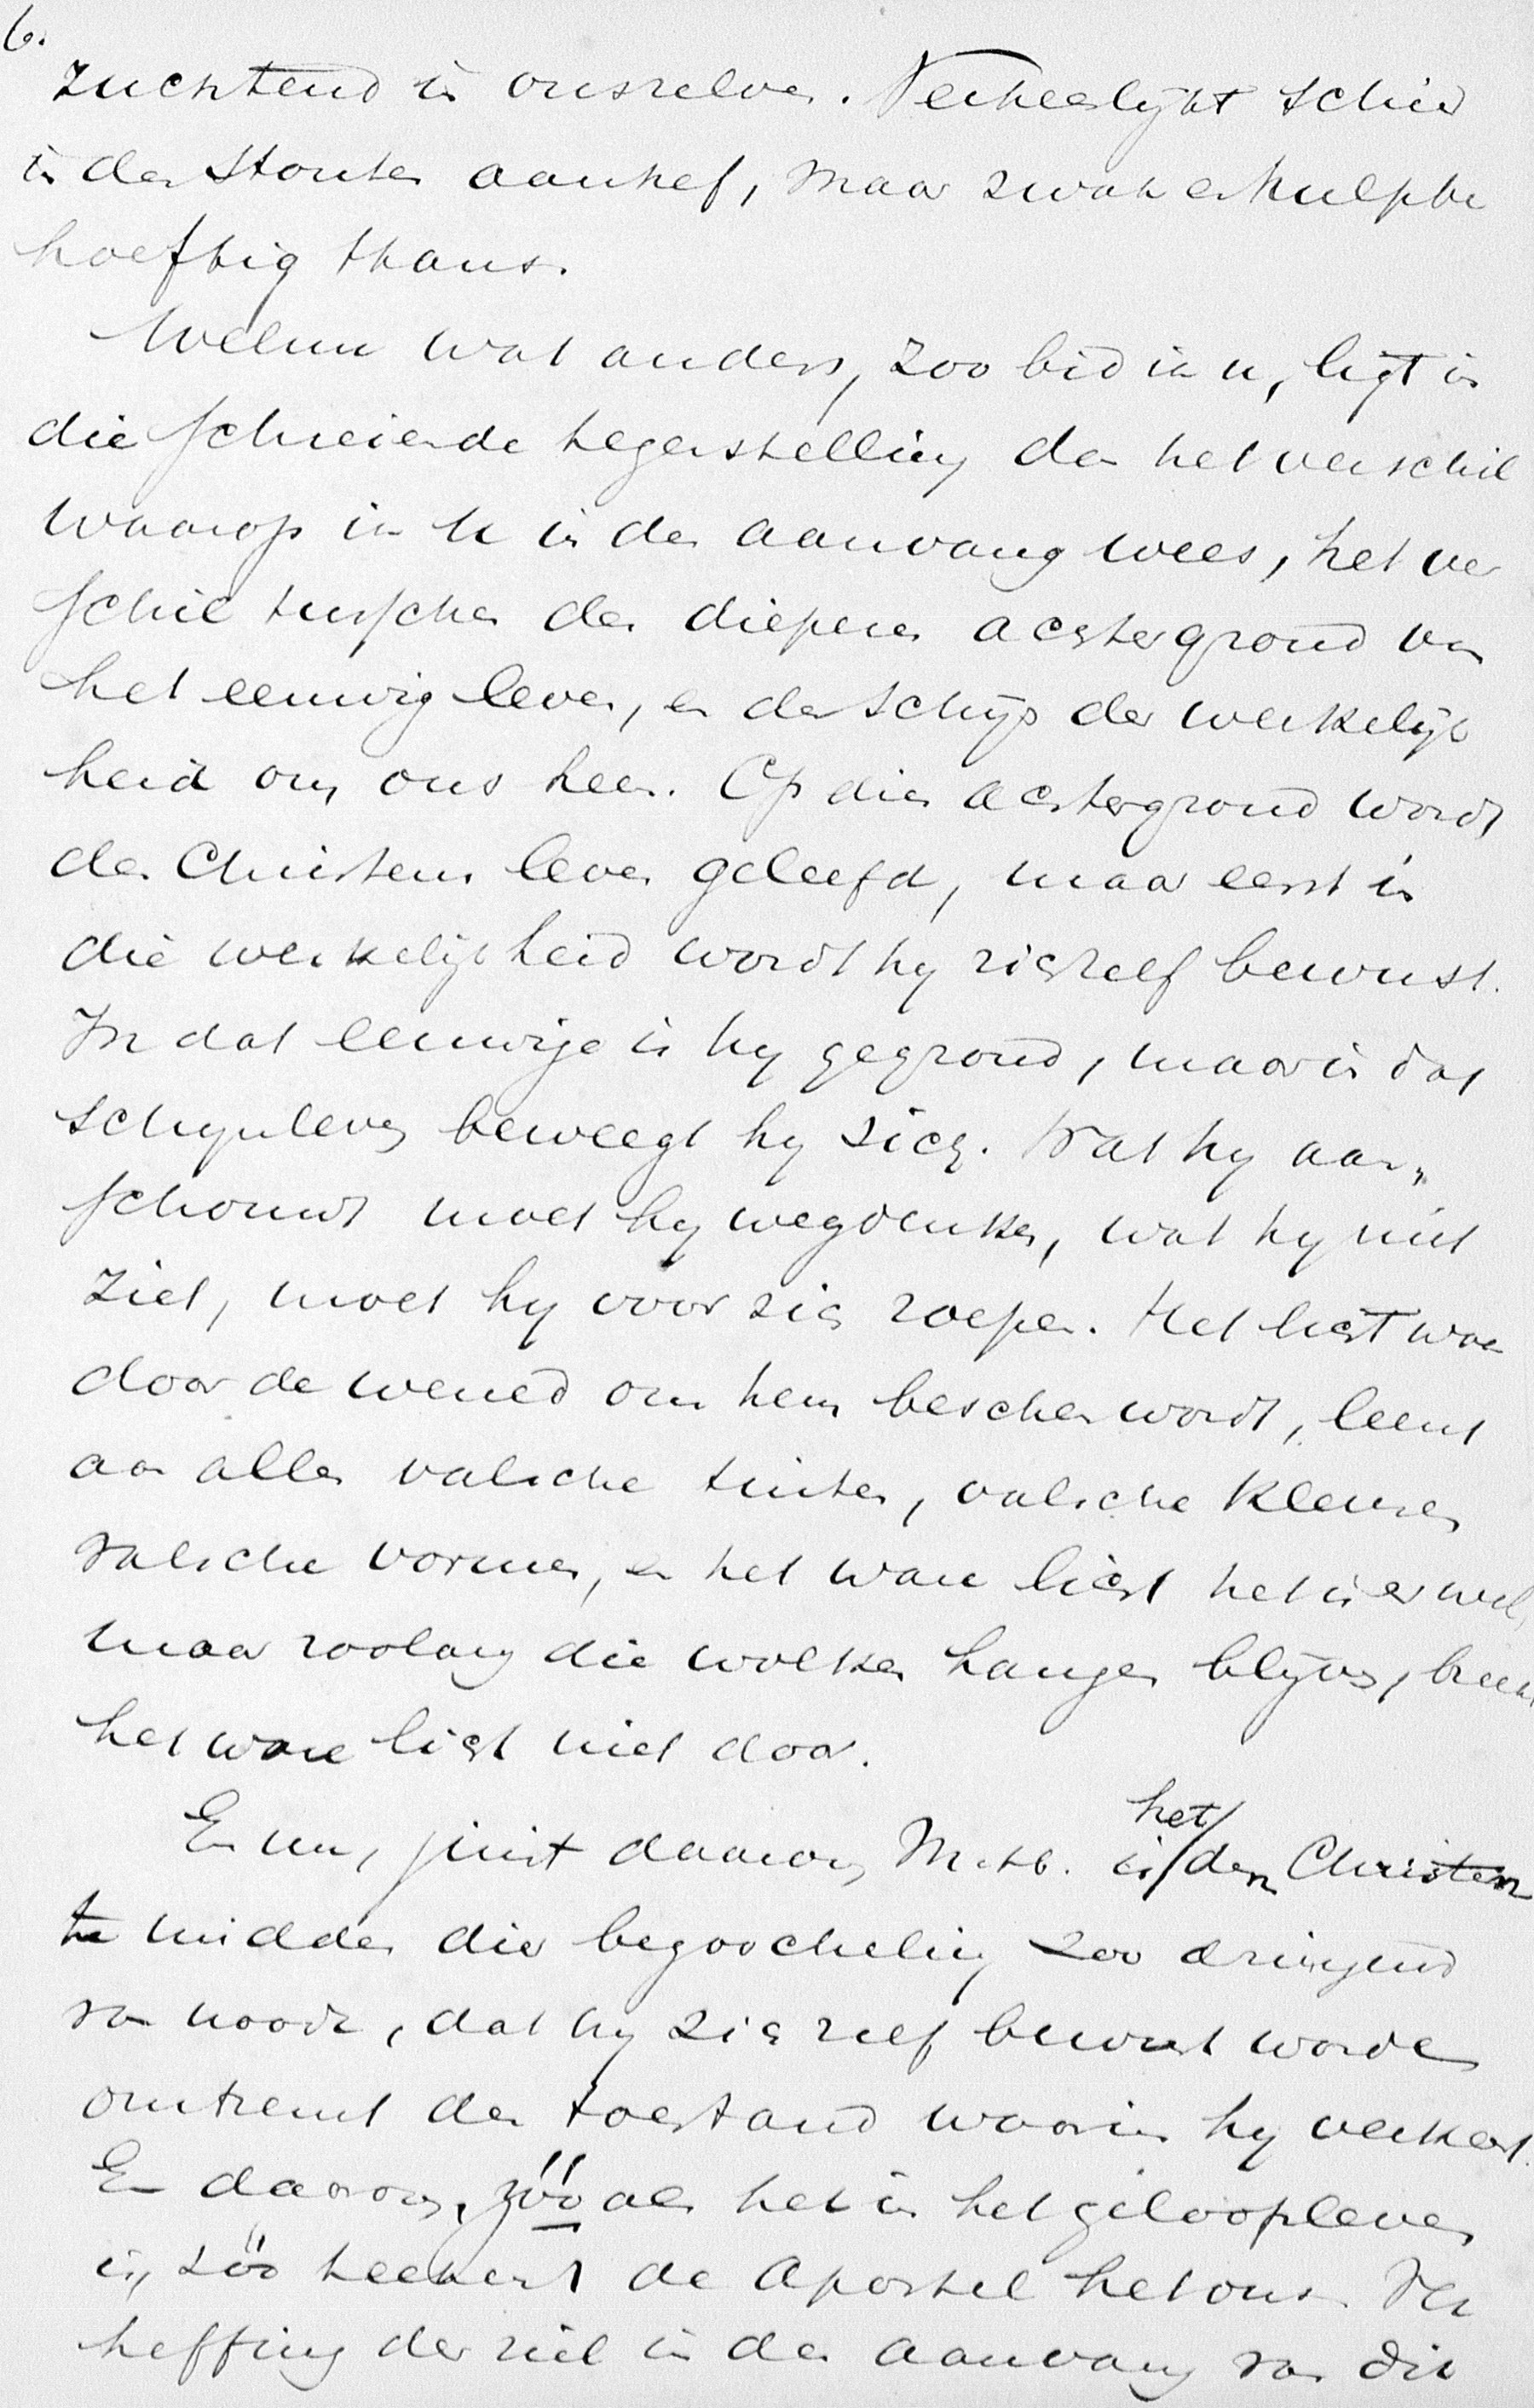 6.
zuchtend in onszelven. Verheerlijkt schier
in den stouten aanhef, maar zwak en hulpbe
hoeftig thans.
Welnu wat anders, zoo bid ik u, ligt in
die schreiende tegenstelling dan het verschil
waarop ik U in den aanvang wees, het ver
schil tusschen den diepen achtergrond van
het eeuwig leven, en den schijn der werkelijk
heid om ons heen. Op dien achtergrond wordt
des Christens leven geleefd, maar eerst in
die werkelijkheid wordt hy zichzelf bewust.
In dat eeuwige is hy gegrond, maar in dat
schijnleven beweegt hy zich. Wat hy aan„
schouwt moet hy wegdenken, wat hy niet
ziet, moet hy voor zich roepen. Het licht waar
door de wereld om hem beschenen wordt, leent
aan alles valsche tinten, valsche kleuren
valsche vormen, en het ware licht het is er wel,
maar zoolang die wolken hangen blijven, breekt
het ware licht niet door.
En nu, juist daarom M. H. is het den Christen
te midden dier begoocheling zoo dringend
van noode, dat hy zich zelf bewust worde
omtrent den toestand waarin hy verkeert.
En daarom, zóó als het in het geloofsleven
is, zóó teekent de Apostel het ons. Ver
heffing der ziel in den aanvang van dit